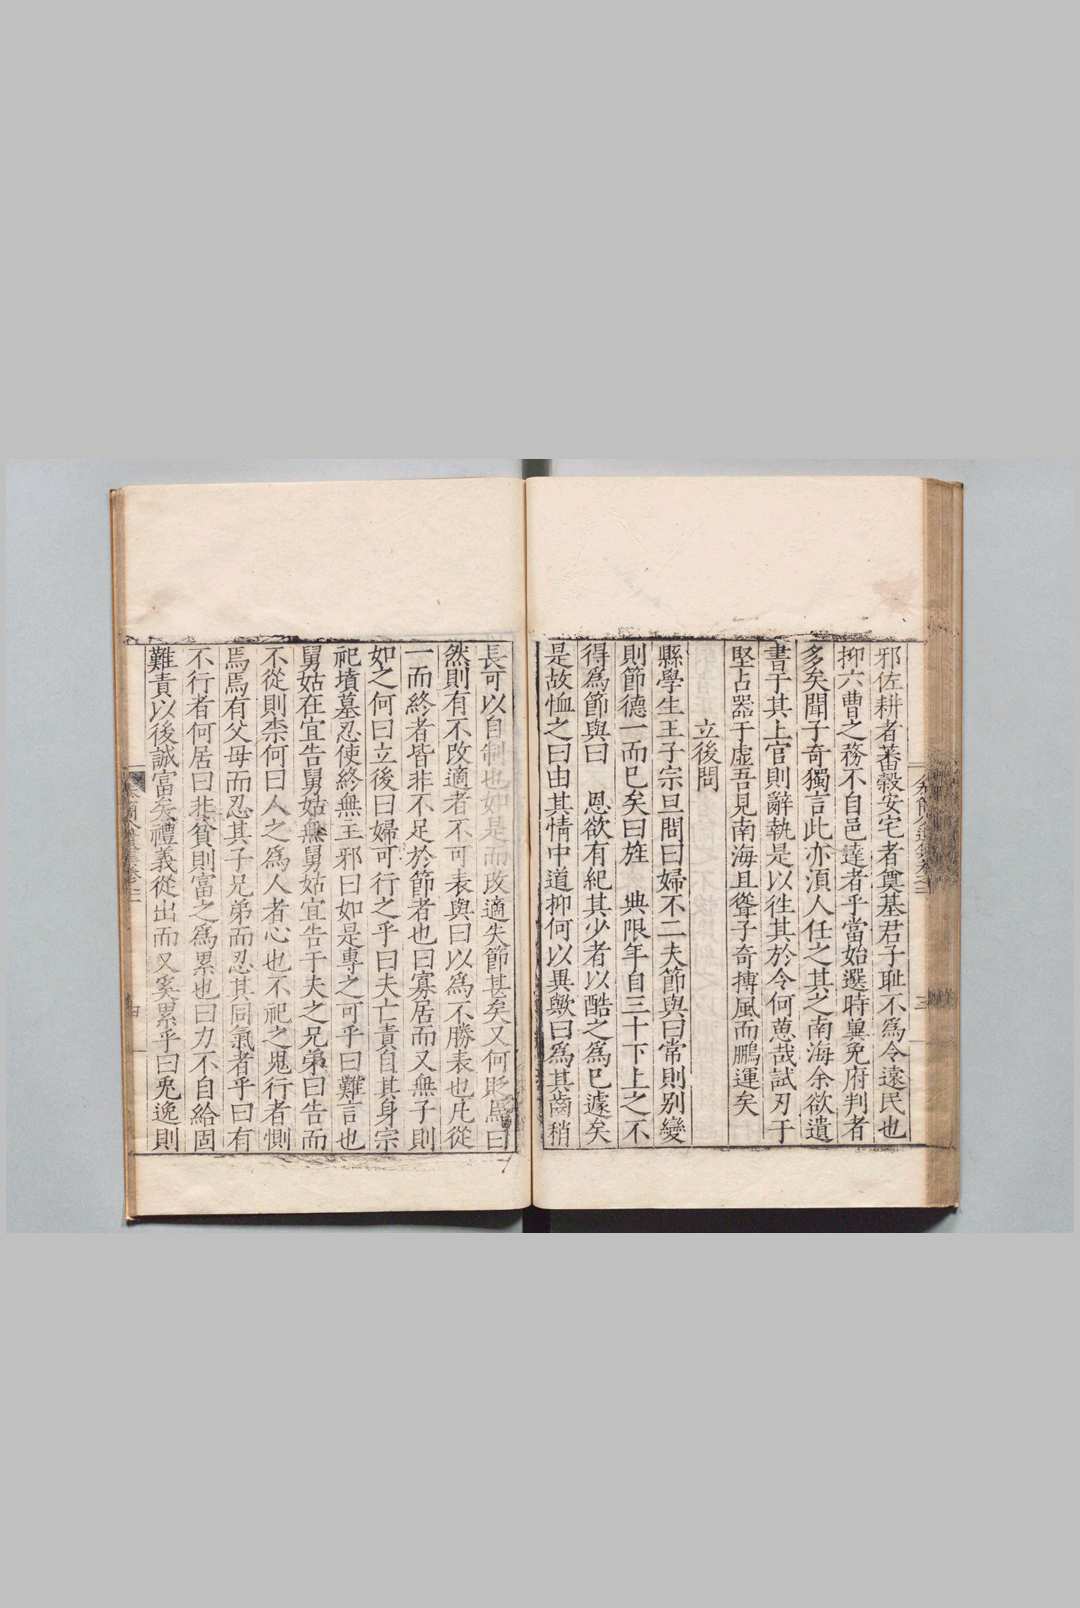 邪佐耕者蕃穀安宅者奠基君子耻不為令遠民也
抑六曹之務不自邑達者乎當始選時兾免府判者
多矣聞子奇獨言此亦湏人任之其之南海余欲遺
書于其上官則辭執是以徃其於令何蒽哉試刃于
堅占器于虛吾見南海且聳子奇摶風而鵬運矣
立後問
縣學生王子宗旦問曰婦不二夫節與曰常則别變
則節德一而已矣曰旌 典限年自三十下上之不
得為節與曰 恩欲有紀其少者以酷之為巳遽矣
是故恤之曰由其情中道抑何以異歟曰為其齒稍
長可以自制也如是而改適失節甚矣又何貶焉曰
然則有不改適者不可表與曰以為不勝表也凡從
一而終者皆非不足於節者也曰寡居而又無子則
如之何曰立後曰婦可行之乎曰夫亡責自其身宗
祀墳墓忍使終無主邪曰如是專之可乎曰難言也
舅姑在宜告舅姑無舅姑宜告于夫之兄弟曰告而
不從則柰何曰人之為人者心也不祀之鬼行者惻
焉焉有父母而忍其子兄弟而忍其同氣者乎曰有
不行者何居曰非貧則富之為累也曰力不自給固
難責以後誠富矣禮義從出而又奚累乎曰兎逸則